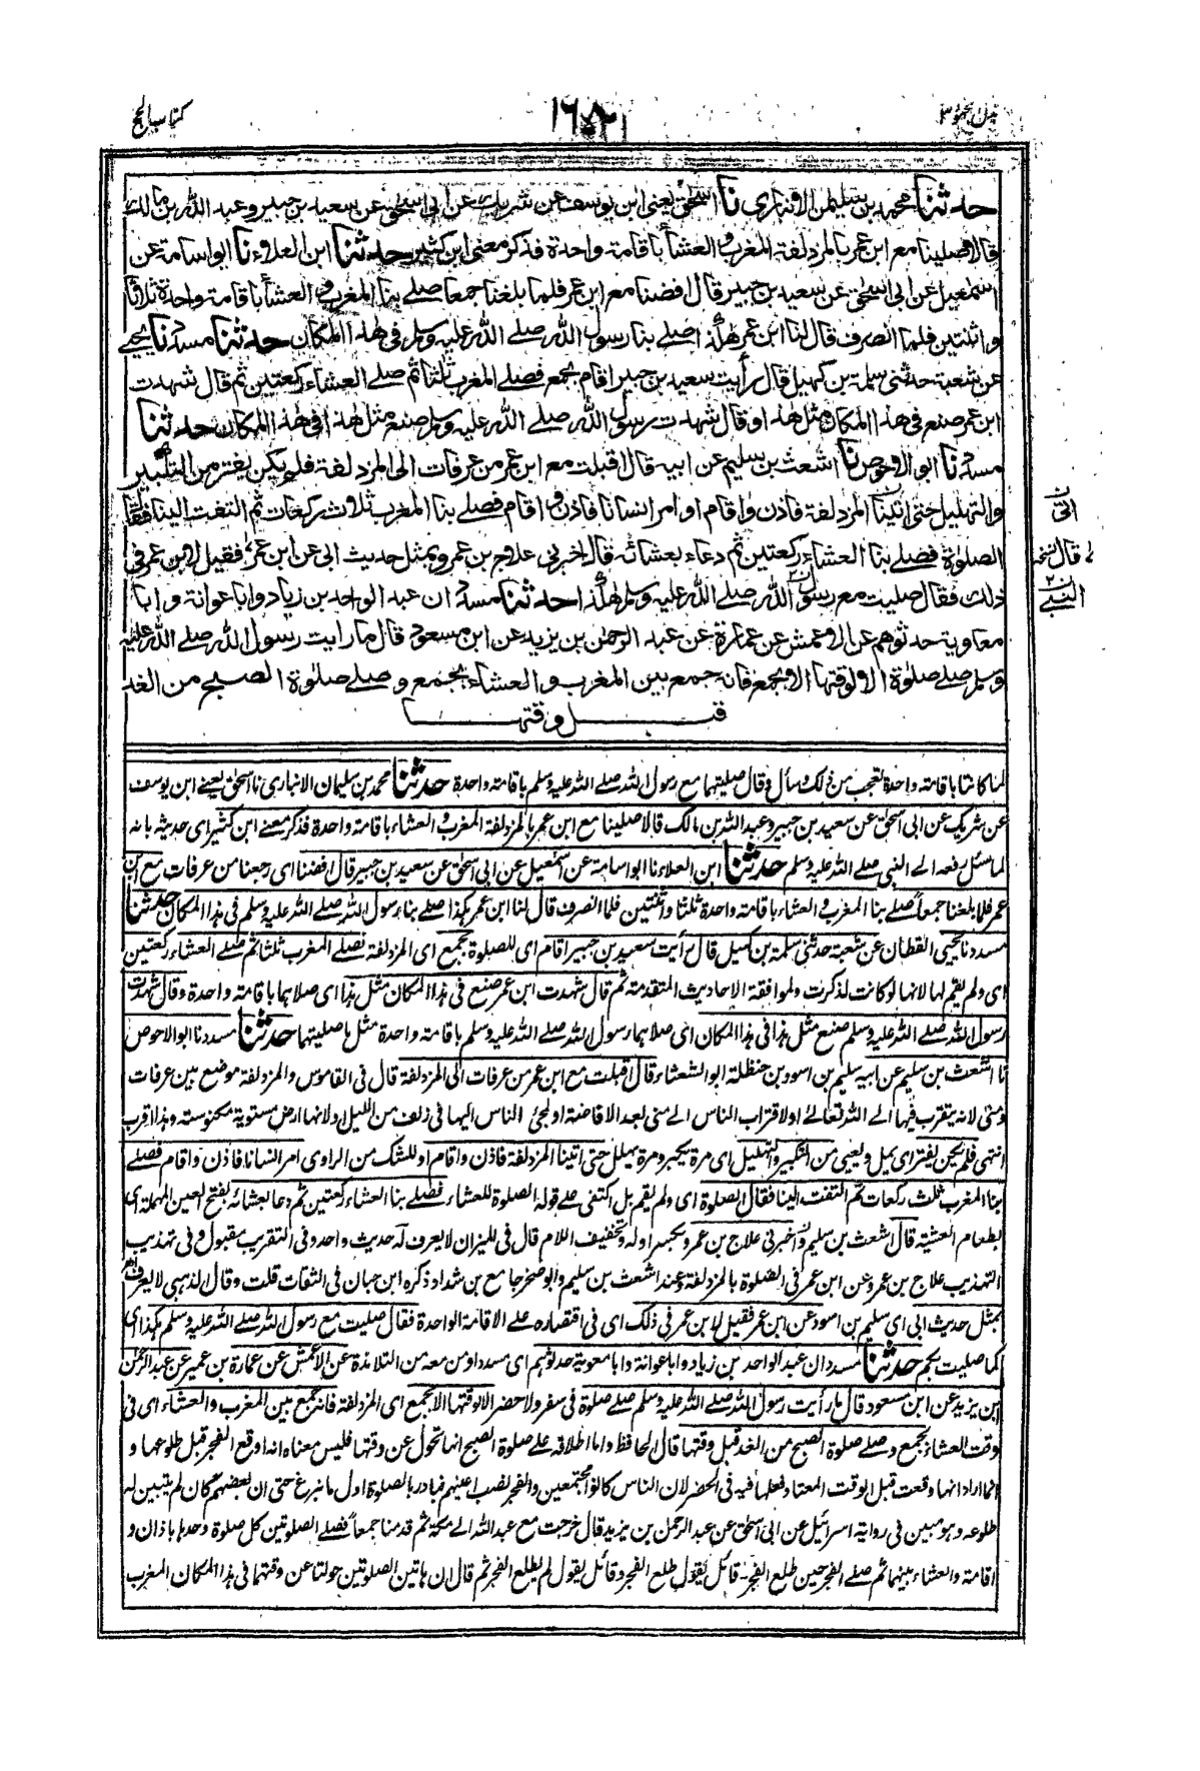 كتاب الحج
حدثنا محمد بن سليمن الانباري نا اسحق يعني ابن يوسف عن شريك عن ابي اسحق عن سعيد بن جبير وعبد الله بن مالك
قالا صلينا مع ابن عمر بالمزدلفة المغرب والعشاء باقامة واحدة فذكر معنى ابن كثير حدثنا ابن العلاء نا ابو اسامة عن
اسمعيل عن ابي اسحق عن سعيد بن جبير قال افضنا مع ابن عمر فلما بلغنا جمعا صلے بنا المغرب والعشاء باقامة واحدة ثلاثا
واثنتين فلما انصرف قال لنا ابن عمر هكذا صلے بنا رسول الله صلے الله عليه وسلم في هذا المكان حدثنا مسدد نا يحيے
عن شعبة حدثني سلمة بن كهيل قال رأيت سعيد بن جبير اقام بجمع فصلے المغرب ثلثا ثم صلے العشاء ركعتين ثم قال شهدت
ابن عمر صنع في هذا المكان مثل هذا وقال شهدت رسول الله صلے الله عليه وسلم صنع مثل هذا في هذا المكان حدثنا
مسدد نا ابو الاحوص نا اشعث بن سليم عن ابيه قال اقبلت مع ابن عمر من عرفات الى المزدلفة فلم يكن يفتر من التكبير
والتهليل حتى اتينا المزدلفة فاذن واقام او امر انسانا فاذن واقام فصلے بنا المغرب ثلاث ركعات ثم التفت الينا فقال
الصلوة فصلے بنا العشاء ركعتين ثم دعاء بعشائه قال اخبرني علاج بن عمرو بمثل حديث ابي عن ابن عمر فقيل لابن عمر في
ذلك فقال صليت مع رسول الله صلے الله عليه وسلم هكذا حدثنا مسدد ان عبد الواحد بن زياد وابا عوانة وابا
معاوية حدثوهم عن الاعمش عن عمارة عن عبد الرحمن بن يزيد عن ابن مسعود قال ما رايت رسول الله صلے الله عليه
وسلم صلے صلوة الا لوقتها الا بجمع فانه جمع بين المغرب والعشاء بجمع وصلے صلوة الصبح من الغد
قبل وقتها
لنا كانتا باقامة واحدة تعجب من ذلك وسأل وقال صليتها مع رسول الله صلے الله عليه وسلم باقامة واحدة حدثنا محمد بن سليمان الانباري نا اسحق يعنے ابن يوسف
عن شريك عن ابى اسحق عن سعيد بن جبير وعبد الله بن مالك قالا صلينا مع ابن عمر بالمزدلفة المغرب والعشاء باقامة واحدة فذكر معنے ابن كثير اى حديثه بانه
لما سئل رفعه الے النبي صلے الله عليه وسلم حدثنا ابن العلاء نا ابو اسامة عن اسمعيل عن ابى اسحق عن سعيد بن جبير قال افضنا اى رجعنا من عرفات مع ابن
عمر فلما بلغنا جمعا صلے بنا المغرب والعشاء باقامة واحدة ثلثا واثنتين فلما انصرف قال لنا ابن عمر هكذا صلے بنا رسول الله صلے الله عليه وسلم فى هذا المكان حدثنا
مسدد نا يحيى القطان عن شعبة حدثنى سلمة بن كهيل قال رأيت سعيد بن جبير اقام اى للصلوة بجمع اى المزدلفة فصلے المغرب ثلثا ثم صلے العشاء ركعتين
اى ولم يقم لها لانها لو كانت لذكرت ولموافقة الاحاديث المتقدمة ثم قال شهدت ابن عمر صنع فى هذا المكان مثل هذا اى صلاهما باقامة واحدة وقال شهدت
رسول الله صلے الله عليه وسلم صنع مثل هذا فى هذا المكان اى صلاهما رسول الله صلے الله عليه وسلم باقامة واحدة مثل ما صليتهما حدثنا مسدد نا ابو الاحوص
نا اشعث بن سليم عن ابيه سليم بن اسود بن حنظلة ابو الشعثاء قال اقبلت مع ابن عمر من عرفات الى المزدلفة قال فى القاموس والمزدلفة موضع بين عرفات
ومنى لانه يتقرب فيها الے الله تعالے او لاقتراب الناس الے منى بعد الافاضة او لمجئ الناس اليها فى زلف من الليل ولانها ارض مستوية مكنوسة وهذا اقرب
انتهى فلم يكن يفتر اى يمل ويعيى من التكبير والتهليل اى مرة يكبر ومرة يهلل حتى اتينا المزدلفة فاذن واقام او للشك من الراوى امر انسانا فاذن واقام فصلے
بنا المغرب ثلث ركعات ثم التفت الينا فقال الصلوة اى ولم يقم بل اكتفى علے قوله الصلوة للعشاء فصلے بنا العشاء ركعتين ثم دعا بعشائه بفتح العين المهملة اى
بطعام العشية قال اشعث بن سليم واخبرنى علاج بن عمرو بكسر اوله وتخفيف اللام قال فى الميزان لا يعرف له حديث واحد وفى التقريب مقبول وفى تهذيب
التهذيب علاج بن عمرو عن ابن عمر فى الصلوة بالمزدلفة وعند اشعث بن سليم وابو صخر جامع بن شداد ذكره ابن حبان فى الثقات قلت وقال الذهبى لا يعرف
بمثل حديث ابى اى سليم بن اسود عن ابن عمر فقيل لابن عمر فى ذلك اى فى اقتصاره علے الاقامة الواحدة فقال صليت مع رسول الله صلے الله عليه وسلم هكذا اى
كما صليت بكم حدثنا مسدد ان عبد الواحد بن زياد وابا عوانة وابا معوية حدثوهم اى مسددا ومن معه من التلامذة عن الاعمش عن عمارة بن عمير عن عبد الرحمن
ابن يزيد عن ابن مسعود قال ما رأيت رسول الله صلے الله عليه وسلم صلے صلوة فى سفر ولا حضر الا لوقتها الا بجمع اى المزدلفة فانه جمع بين المغرب والعشاء اى فى
وقت العشاء بجمع وصلے صلوة الصبح من الغد قبل وقتها قال الحافظ واما اطلاقه علے صلوة الصبح انها تحول عن وقتها فليس معناه انه اوقع الفجر قبل طلوعها و
انما اراد انها وقعت قبل الوقت المعتاد فعلها فيه فى الحضر لان الناس كانوا مجتمعين والفجر نصب اعينهم فبادر بالصلوة اول ما بزغ حتى ان بعضهم كان لم يتبين له
طلوعه وهو مبين فى رواية اسرائيل عن ابى اسحق عن عبد الرحمن بن يزيد قال خرجت مع عبد الله الے مكة ثم قدمنا جمعا فصلے الصلوتين كل صلوة وحدها باذان و
اقامة والعشاء بينهما ثم صلے الفجر حين طلع الفجر قائل يقول طلع الفجر وقائل يقول لم يطلع الفجر ثم قال ان هاتين الصلوتين حولتا عن وقتهما فى هذا المكان المغرب